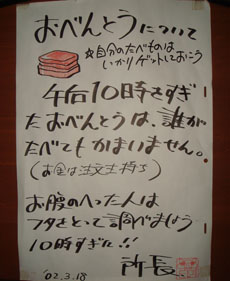 おべんとうについて
☆自分のたべものは
しっかりゲットしておこう
午后10時すぎ
たおべんとうは、誰が
たべてもかまいません。
(お金は注文主持ち)
お腹のへった人は
フタをとって調べましょう
10時すぎた!!
'02.3.18
所長